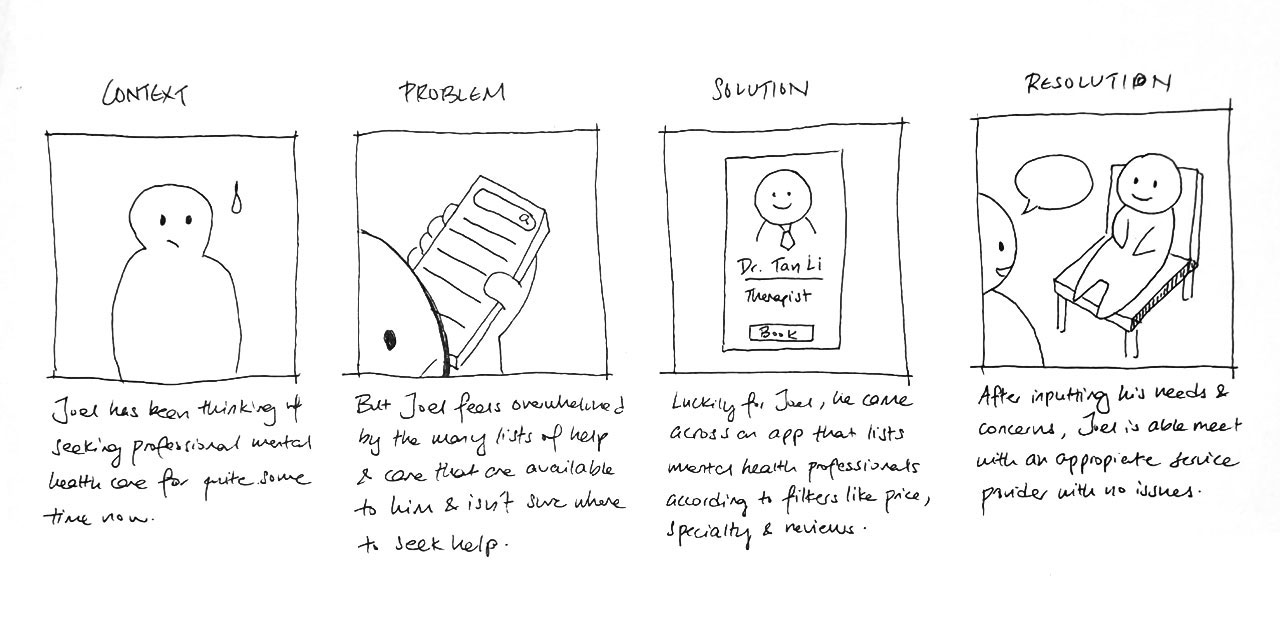 CONTEXT
Joel has been thinking of
seeking professional mental
health care for quite some
time now.
PROBLEM
But Joel feels overwhelmed
by the many lists of help
& care that are available
to him & isn't sure where
to seek help.
SOLUTION
Dr. Tan Li
Therapist
Book
Luckily for Joel, he came
across an app that lists
mental health professionals
according to filters like price,
specialty & reviews.
RESOLUTION
After inputting his needs &
concerns, Joel is able meet
with an appropiate service
provider with no issues.